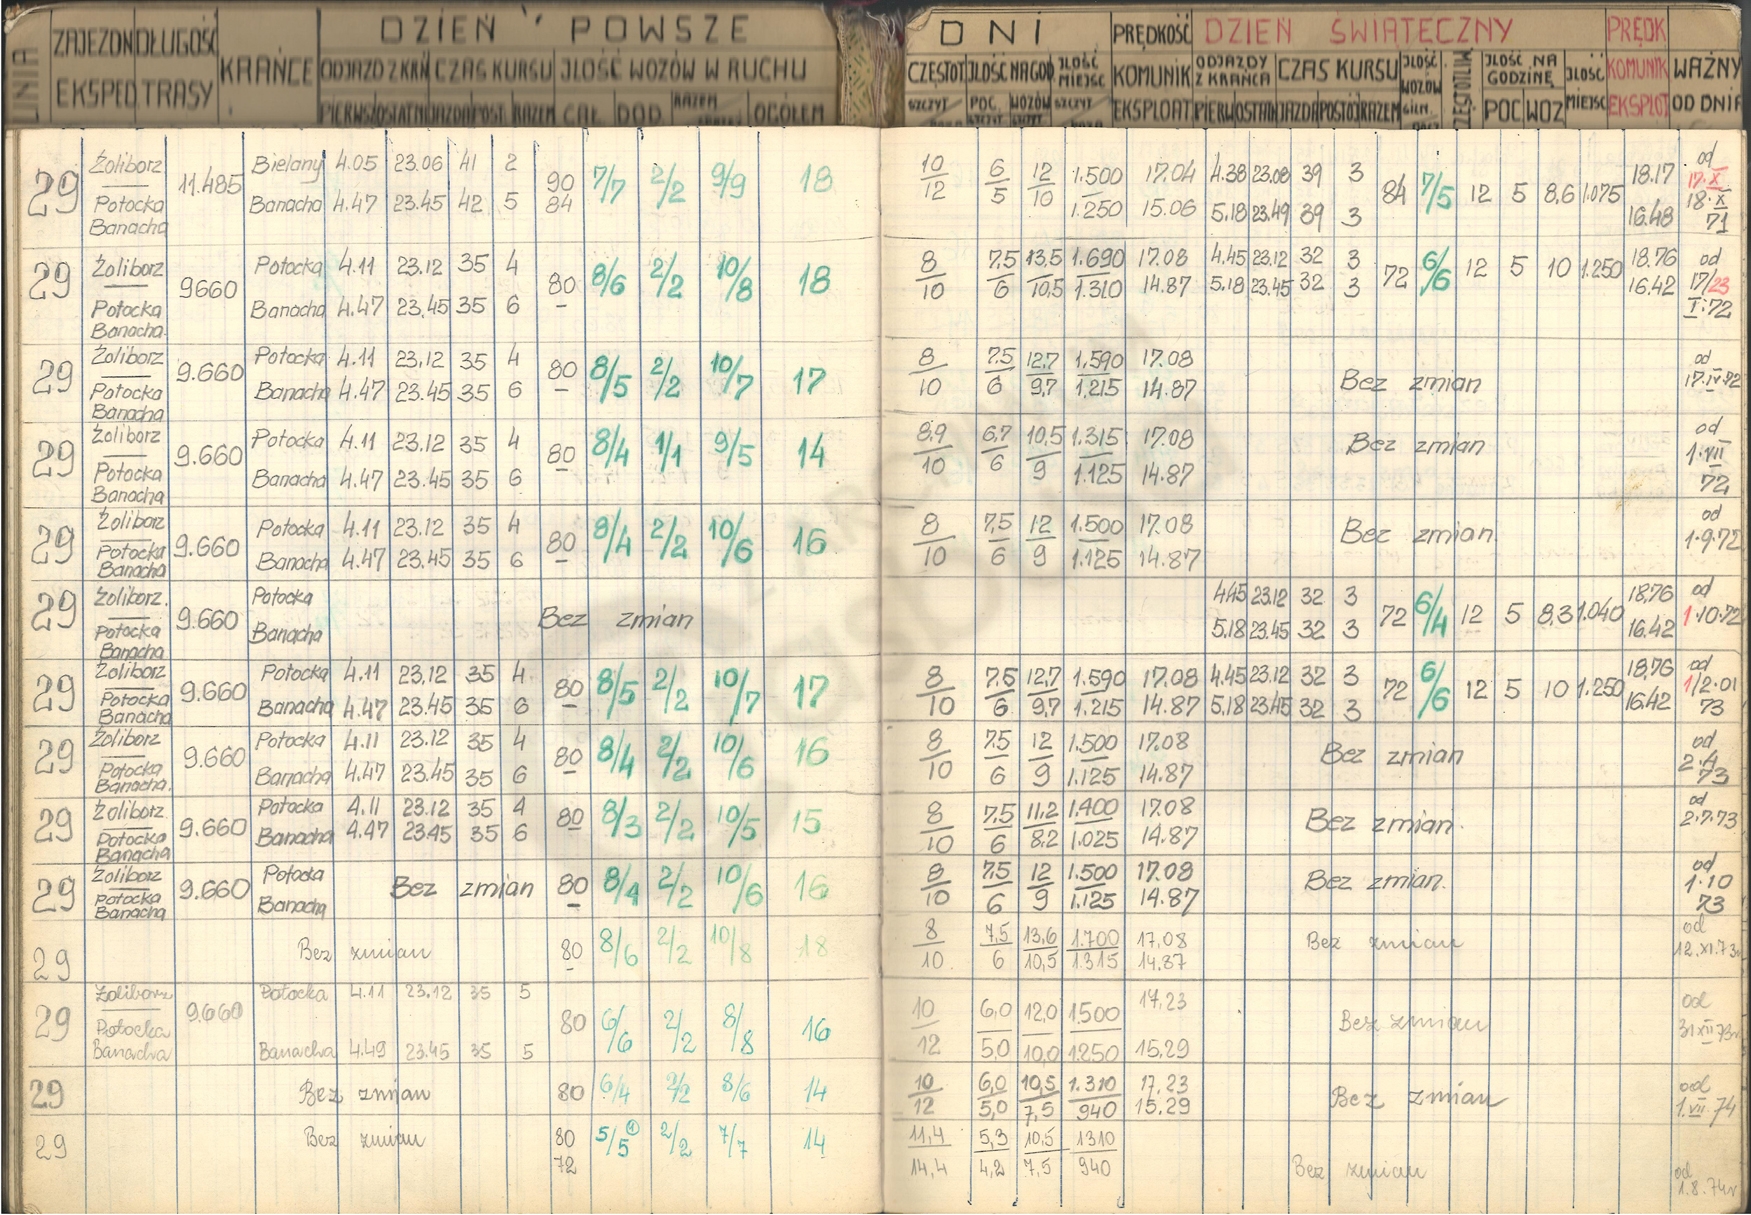 LINIA ZAJEZDN DŁUGOŚĆ KRAŃCE DZIEŃ POWSZE
EKSPED. TRASY ODJAZD Z KRAŃ CZAS KURSU ILOŚĆ WOZÓW W RUCHU
PIERWSZ OSTATNI JAZDA POST. RAZEM CAŁ. DOD. RAZEM OGÓŁEM
DNI PRĘDKOŚĆ DZIEŃ ŚWIĄTECZNY PRĘDK
CZĘSTOT ILOŚĆ NA GOD. ILOŚĆ MIEJSC KOMUNIK ODJAZDY Z KRAŃCA CZAS KURSU ILOŚĆ WOZÓW CZĘSTOTLIW. ILOŚĆ NA GODZINĘ ILOŚĆ KOMUNIK WAŻNY
SZCZYT POC. WOZÓW SZCZYT EKSPLOAT PIERW OSTAN JAZDA POSTÓJ RAZEM POC WOZ MIEJSC EKSPLOT OD DNIA
29 Żoliborz Potocka Banacha 11.485 Bielany 4.05 23.06 41 2
Banacha 4.47 23.45 42 5
90 84 7/7 2/2 9/9 18
10/12 6/5 12/10 1.500 1.250 17.04 15.06 4.38 23.08 39 3
5.18 23.49 39 3
84 7/5 12 5 8,6 1.075 18.17 16.48 od 17.X 18.X 71
29 Żoliborz Potocka Banacha 9660 Potocka 4.11 23.12 35 4
Banacha 4.47 23.45 35 6
80 8/6 2/2 10/8 18
8/10 7,5/6 13,5/10,5 1.690 1.310 17.08 14.87 4.45 23.12 32 3
5.18 23.45 32 3
72 6/6 12 5 10 1.250 18.76 16.42 od 17/23 I.72
29 Żoliborz Potocka Banacha 9.660 Potocka 4.11 23.12 35 4
Banacha 4.47 23.45 35 6
80 8/5 2/2 10/7 17
8/10 7,5/6 12,7/9,7 1.590 1.215 17.08 14.87 Bez zmian od 17.IV.72
29 Żoliborz Potocka Banacha 9.660 Potocka 4.11 23.12 35 4
Banacha 4.47 23.45 35 6
80 8/4 1/1 9/5 14
8,9/10 6,7/6 10,5/9 1.315 1.125 17.08 14.87 Bez zmian od 1.VII 72
29 Żoliborz Potocka Banacha 9.660 Potocka 4.11 23.12 35 4
Banacha 4.47 23.45 35 6
80 8/4 2/2 10/6 16
8/10 7,5/6 12/9 1.500 1.125 17.08 14.87 Bez zmian. od 1.9.72
29 Żoliborz. Potocka Banacha 9.660 Potocka
Banacha
Bez zmian
4.45 23.12 32 3
5.18 23.45 32 3
72 6/4 12 5 8,3 1.040 18,76 16.42 od 1.10.72
29 Żoliborz Potocka Banacha 9.660 Potocka 4.11 23.12 35 4
Banacha 4.47 23.45 35 6
80 8/5 2/2 10/7 17
8/10 7,5/6 12,7/9,7 1.590 1.215 17.08 14.87 4.45 23.12 32 3
5.18 23.45 32 3
72 6/6 12 5 10 1.250 18,76 16.42 od 1/2.01 73
29 Żoliborz Potocka Banacha. 9.660 Potocka 4.11 23.12 35 4
Banacha 4.47 23.45 35 6
80 8/4 2/2 10/6 16
8/10 7,5/6 12/9 1.500 1.125 17.08 14.87 Bez zmian od 2.4 73
29 Żoliborz Potocka Banacha 9.660 Potocka 4.11 23.12 35 4
Banacha 4.47 23.45 35 6
80 8/3 2/2 10/5 15
8/10 7,5/6 11,2/8,2 1.400 1.025 17.08 14.87 Bez zmian. od 2.7.73
29 Żoliborz Potocka Banacha 9.660 Potocka
Banacha
Bez zmian 80 8/4 2/2 10/6 16
8/10 7,5/6 12/9 1.500 1.125 17.08 14.87 Bez zmian. od 1.10 73
29 Bez zmian 80 8/6 2/2 10/8 18
8/10 7,5/6 13,6/10,5 1.700 1.315 17,08 14.87 Bez zmian od 12.XI.73r
29 Żoliborz Potocka Banacha 9.660 Potocka 4.11 23.12 35 5
Banacha 4.49 23.45 35 5
80 6/6 2/2 8/8 16
10/12 6,0/5,0 12,0/10,0 1500 1250 17,23 15,29 Bez zmian od 31XII73r
29 Bez zmian 80 6/4 2/2 8/6 14
10/12 6,0/5,0 10,5/7,5 1.310 940 17.23 15.29 Bez zmian od 1.VII.74
29 Bez zmian 80 72 5/5 2/2 7/7 14
11,4/14,4 5,3/4,2 10,5/7,5 1310 940 Bez zmian od 1.8.74r